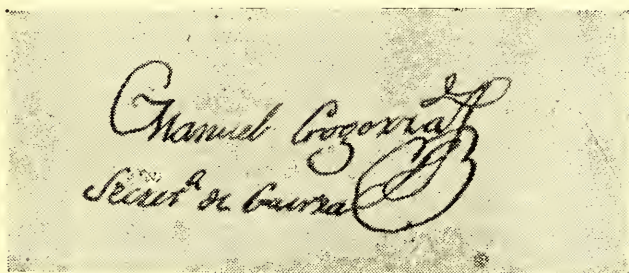 Manuel Gogorza
Secret.º de Guerra